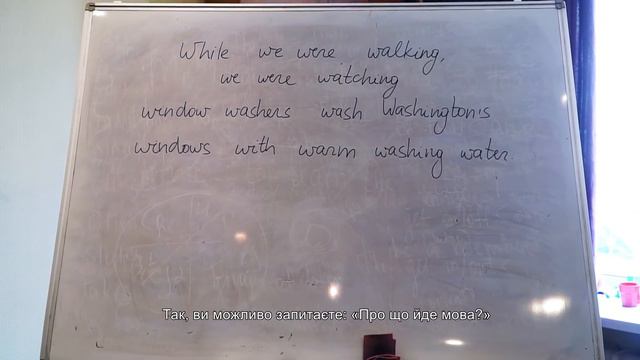 While we were walking,
we were watching
window washers wash Washington's
windows with warm washing water.
Так, ви можливо запитаєте: «Про що йде мова?»